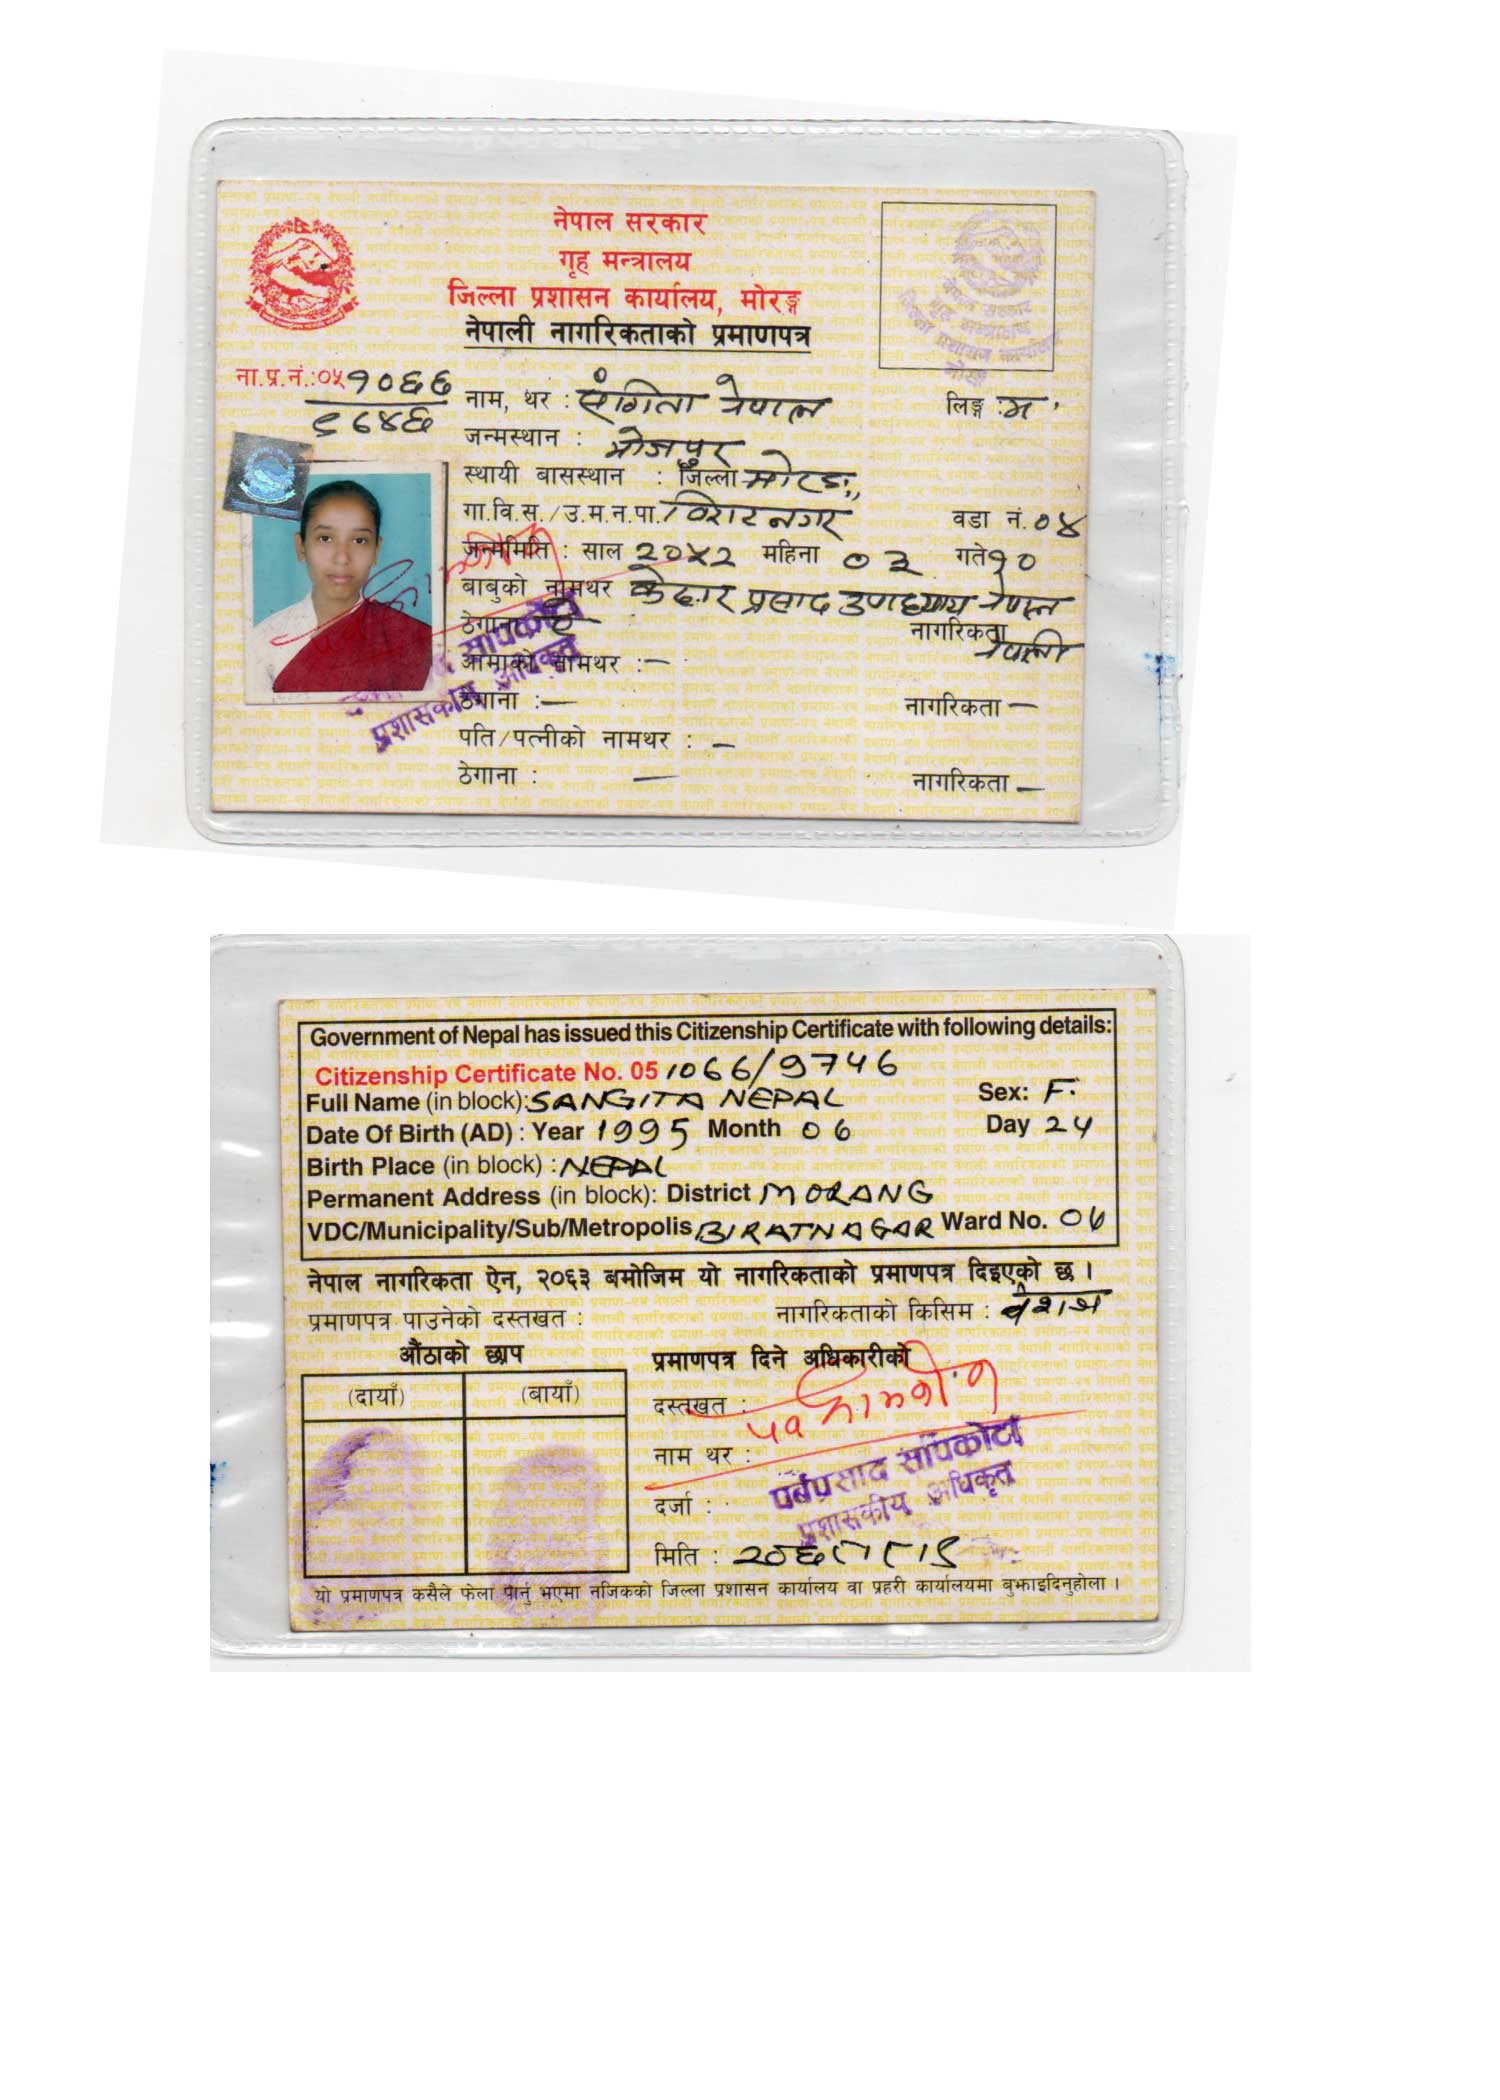 नेपाल सरकार
गृह मन्त्रालय
जिल्ला प्रशासन कार्यालय, मोरङ्ग
नेपाली नागरिकताको प्रमाणपत्र
ना.प्र.नं.:०५१०६६
९७४६
नाम, थर : संगिता नेपाल लिङ्ग : म.
जन्मस्थान : भोजपुर
स्थायी बासस्थान : जिल्ला मोरङ
गा.वि.स./उ.म.न.पा./विराटनगर वडा नं. ०४
जन्ममिति : साल २०५२ महिना ०३ गते १०
बाबुको नामथर केदार प्रसाद उपाध्याय नेपाल
ठेगाना ऐ - नागरिकता नेपाली
आमाको नामथर :—
ठेगाना :— नागरिकता —
पति/पत्नीको नामथर : —
ठेगाना : — नागरिकता —
सापकोटा
प्रशासकीय अधिकृत
Government of Nepal has issued this Citizenship Certificate with following details:
Citizenship Certificate No. 051066/9746
Full Name (in block): SANGITA NEPAL Sex: F.
Date Of Birth (AD) : Year 1995 Month 06 Day 24
Birth Place (in block) : NEPAL
Permanent Address (in block): District MORANG
VDC/Municipality/Sub/Metropolis BIRATNAGAR Ward No.
नेपाल नागरिकता ऐन, २०६३ बमोजिम यो नागरिकताको प्रमाणपत्र दिइएको छ ।
प्रमाणपत्र पाउनेको दस्तखत : नागरिकताको किसिम : वंशज
औंठाको छाप
(दायाँ) (बायाँ)
प्रमाणपत्र दिने अधिकारीको
दस्तखत :
नाम थर :
पर्बप्रसाद सापकोटा
दर्जा : प्रशासकीय अधिकृत
मिति :
यो प्रमाणपत्र कसैले फेला पार्नु भएमा नजिकको जिल्ला प्रशासन कार्यालय वा प्रहरी कार्यालयमा बुझाइदिनुहोला ।